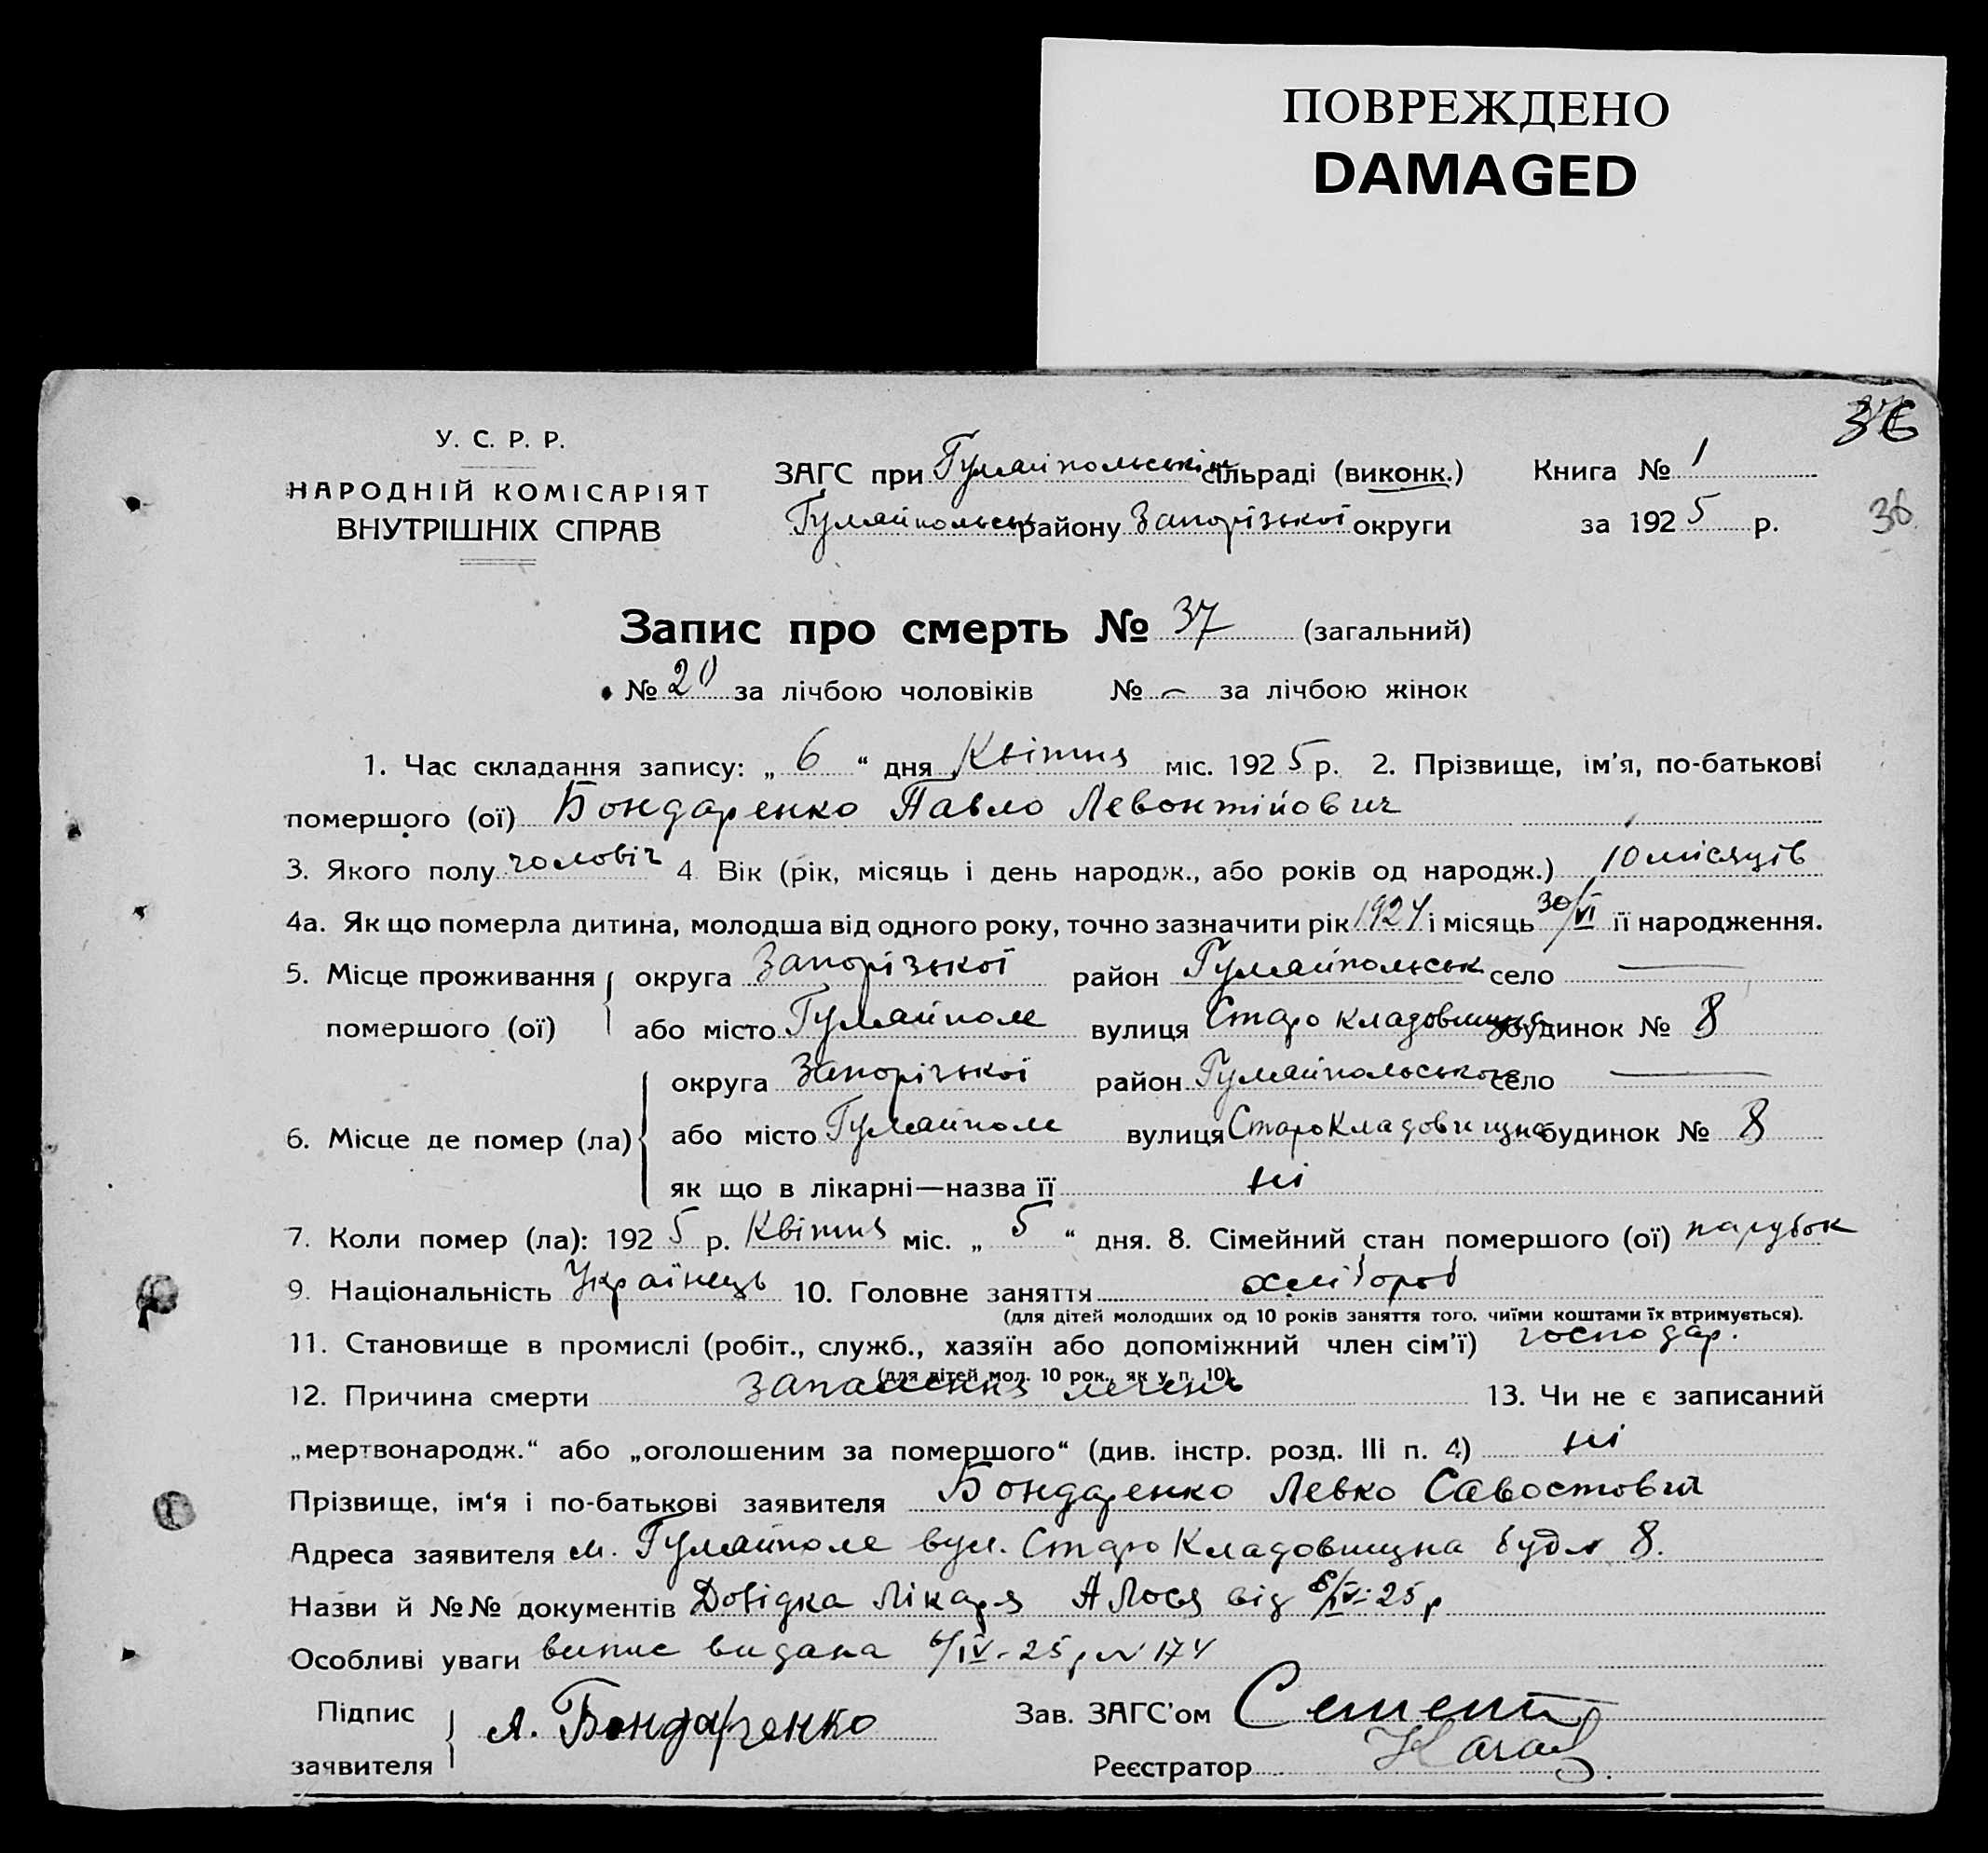 ПОВРЕЖДЕНО
DAMAGED
36
У. С. Р. Р.
НАРОДНІЙ КОМІСАРІЯТ
ВНУТРІШНІХ СПРАВ
ЗАГС при Гуляйпольськім сільраді (виконк.) Книга № 1
Гуляйпольськ району Запорізької округи за 1925 р.
36
Запис про смерть № 37 (загальний)
№ 20 за лічбою чоловіків № — за лічбою жінок
1. Час складання запису: „ 6 “ дня Квітня міс. 1925 р. 2. Прізвище, ім'я, по-батькові
помершого (ої) Бондаренко Павло Левонтійович
3. Якого полу чоловіч 4. Вік (рік, місяць і день народж., або років од народж.) 10 місяців
4а. Як що померла дитина, молодша від одного року, точно зазначити рік 1924 і місяць 30/VI її народження.
5. Місце проживання округа Запорізької район Гуляйпольськ село —
помершого (ої) або місто Гуляйполе вулиця Старо кладовищна будинок № 8
округа Запорізької район Гуляйпольського село —
6. Місце де помер (ла) або місто Гуляйполе вулиця Старо Кладовищна будинок № 8
як що в лікарні—назва її ні
7. Коли помер (ла): 1925 р. Квітня міс. „ 5 “ дня. 8. Сімейний стан помершого (ої) парубок
9. Національність Українець 10. Головне заняття хлібороб
(для дітей молодших од 10 років заняття того, чиїми коштами їх втримується).
11. Становище в промислі (робіт., служб., хазяїн або допоміжний член сім'ї) господар.
(для дітей мол. 10 рок., як у п. 10).
12. Причина смерти запалення легень 13. Чи не є записаний
„мертвонародж.“ або „оголошеним за помершого“ (див. інстр. розд. III п. 4) ні
Прізвище, ім'я і по-батькові заявителя Бондаренко Левко Савостович
Адреса заявителя м. Гуляйполе вул. Старо Кладовищна буд № 8.
Назви й №№ документів Довідка Лікаря А Лося від 6/IV-25 р
Особливі уваги випис видана 6/IV-25 р № 174
Підпис
заявителя Л. Бондаренко
Зав. ЗАГС'ом
Реєстратор